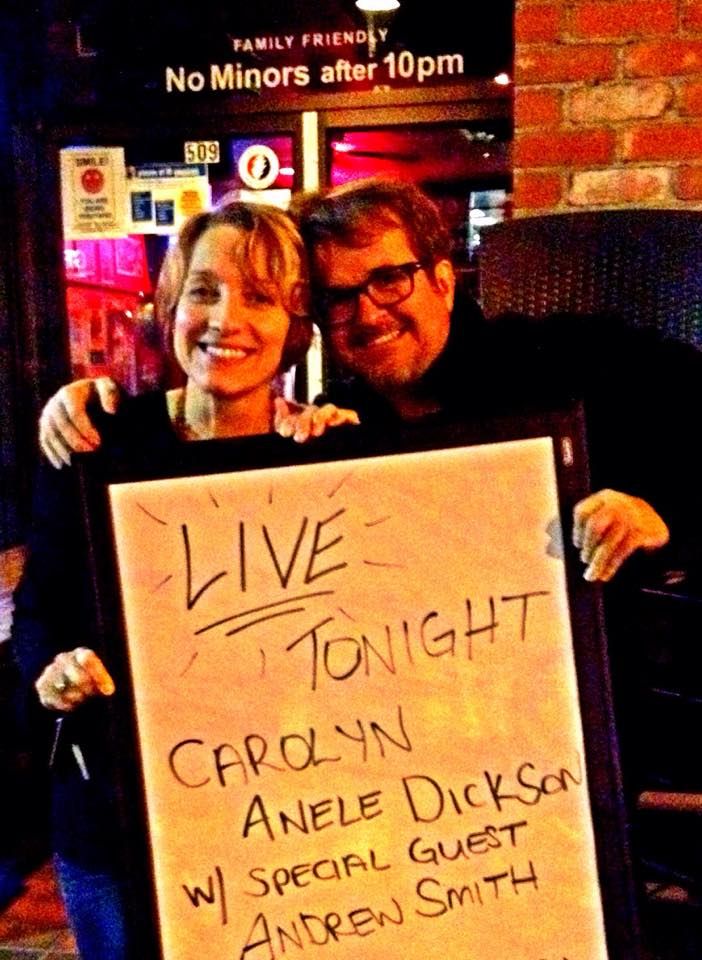 FAMILY FRIENDLY
No Minors after 10pm
509
SMILE!
YOU ARE
BEING
LIVE
TONIGHT
CAROLYN
ANELE DICKSON
W/ SPECIAL GUEST
ANDREW SMITH